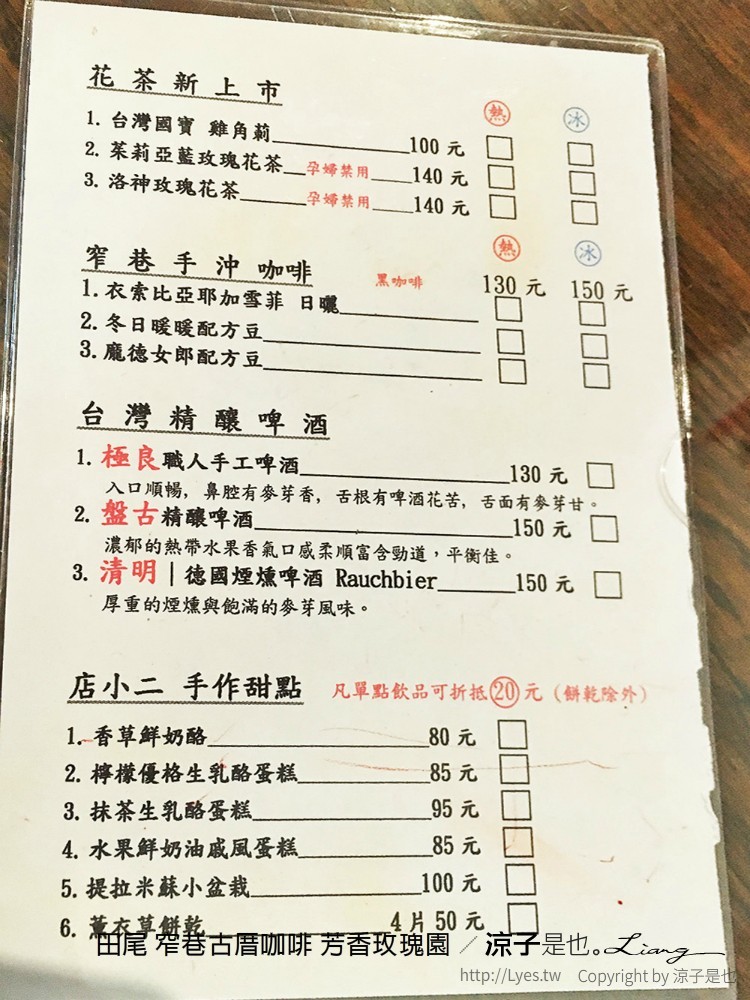 花茶新上市
熱 冰
1. 台灣國寶 雞角莿 100元
2. 茱莉亞藍玫瑰花茶 孕婦禁用 140元
3. 洛神玫瑰花茶 孕婦禁用 140元
熱 冰
窄巷手沖咖啡 黑咖啡 130元 150元
1. 衣索比亞耶加雪菲 日曬
2. 冬日暖暖配方豆
3. 龐德女郎配方豆
台灣精釀啤酒
1. 極良職人手工啤酒 130元
入口順暢, 鼻腔有麥芽香, 舌根有啤酒花苦, 舌面有麥芽甘。
2. 盤古精釀啤酒 150元
濃郁的熱帶水果香氣口感柔順富含勁道,平衡佳。
3. 清明|德國煙燻啤酒 Rauchbier 150元
厚重的煙燻與飽滿的麥芽風味。
店小二 手作甜點 凡單點飲品可折抵20元(餅乾除外)
1. 香草鮮奶酪 80元
2. 檸檬優格生乳酪蛋糕 85元
3. 抹茶生乳酪蛋糕 95元
4. 水果鮮奶油戚風蛋糕 85元
5. 提拉米蘇小盆栽 100元
6. 薰衣草餅乾 4片50元
田尾 窄巷古厝咖啡 芳香玫瑰園 / 涼子是也。Liang
http://Lyes.tw Copyright by 涼子是也